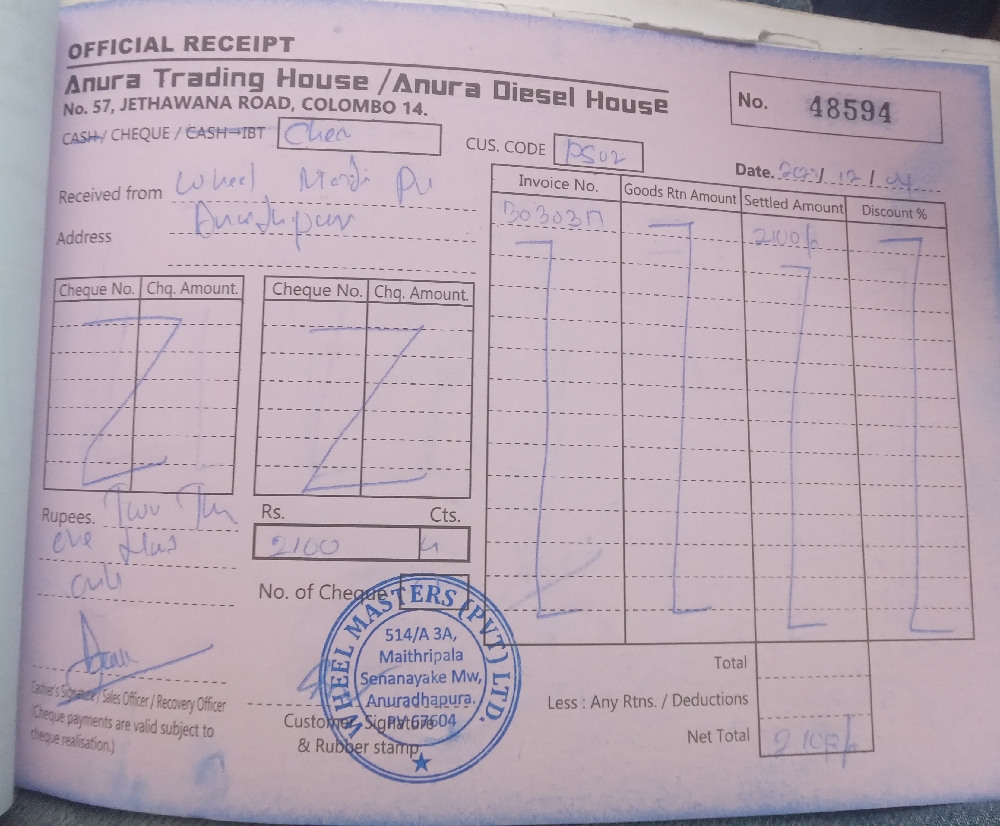 OFFICIAL RECEIPT
Anura Trading House / Anura Diesel House
No. 57, JETHAWANA ROAD, COLOMBO 14.
No. 48594
CASH / CHEQUE / CASH IBT
CUS. CODE
Date.
Received from Wheel
Address
Invoice No. Goods Rtn Amount Settled Amount Discount %
2100/-
Cheque No. Chq. Amount. Cheque No. Chq. Amount.
Rupees. Two
Rs. Cts.
2100
No. of Cheque
WHEEL MASTERS (PVT) LTD.
514/A 3A,
Maithripala
Senanayake Mw,
Anuradhapura.
PV 67604
Cashier's Signature / Sales Officer / Recovery Officer
Cheque payments are valid subject to
cheque realisation.)
Customer Signature
& Rubber stamp
Total
Less : Any Rtns. / Deductions
Net Total 2100/-